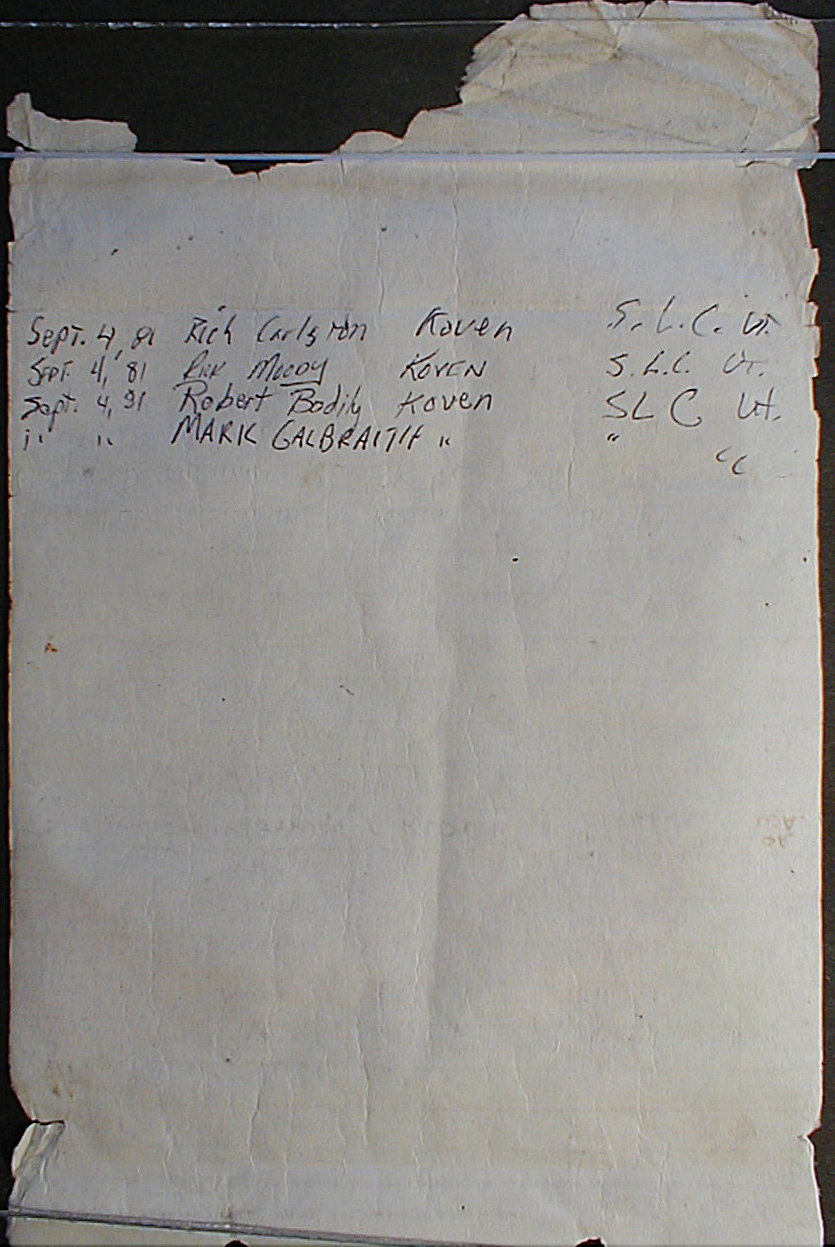 Sept. 4, 81 Rich Carlston Koven S.L.C. Ut.
Sept. 4, '81 Rick Moody KOVEN S.L.C. UT.
Sept. 4, 81 Robert Bodily Koven SLC Ut.
" " MARK GALBRAITH " " "